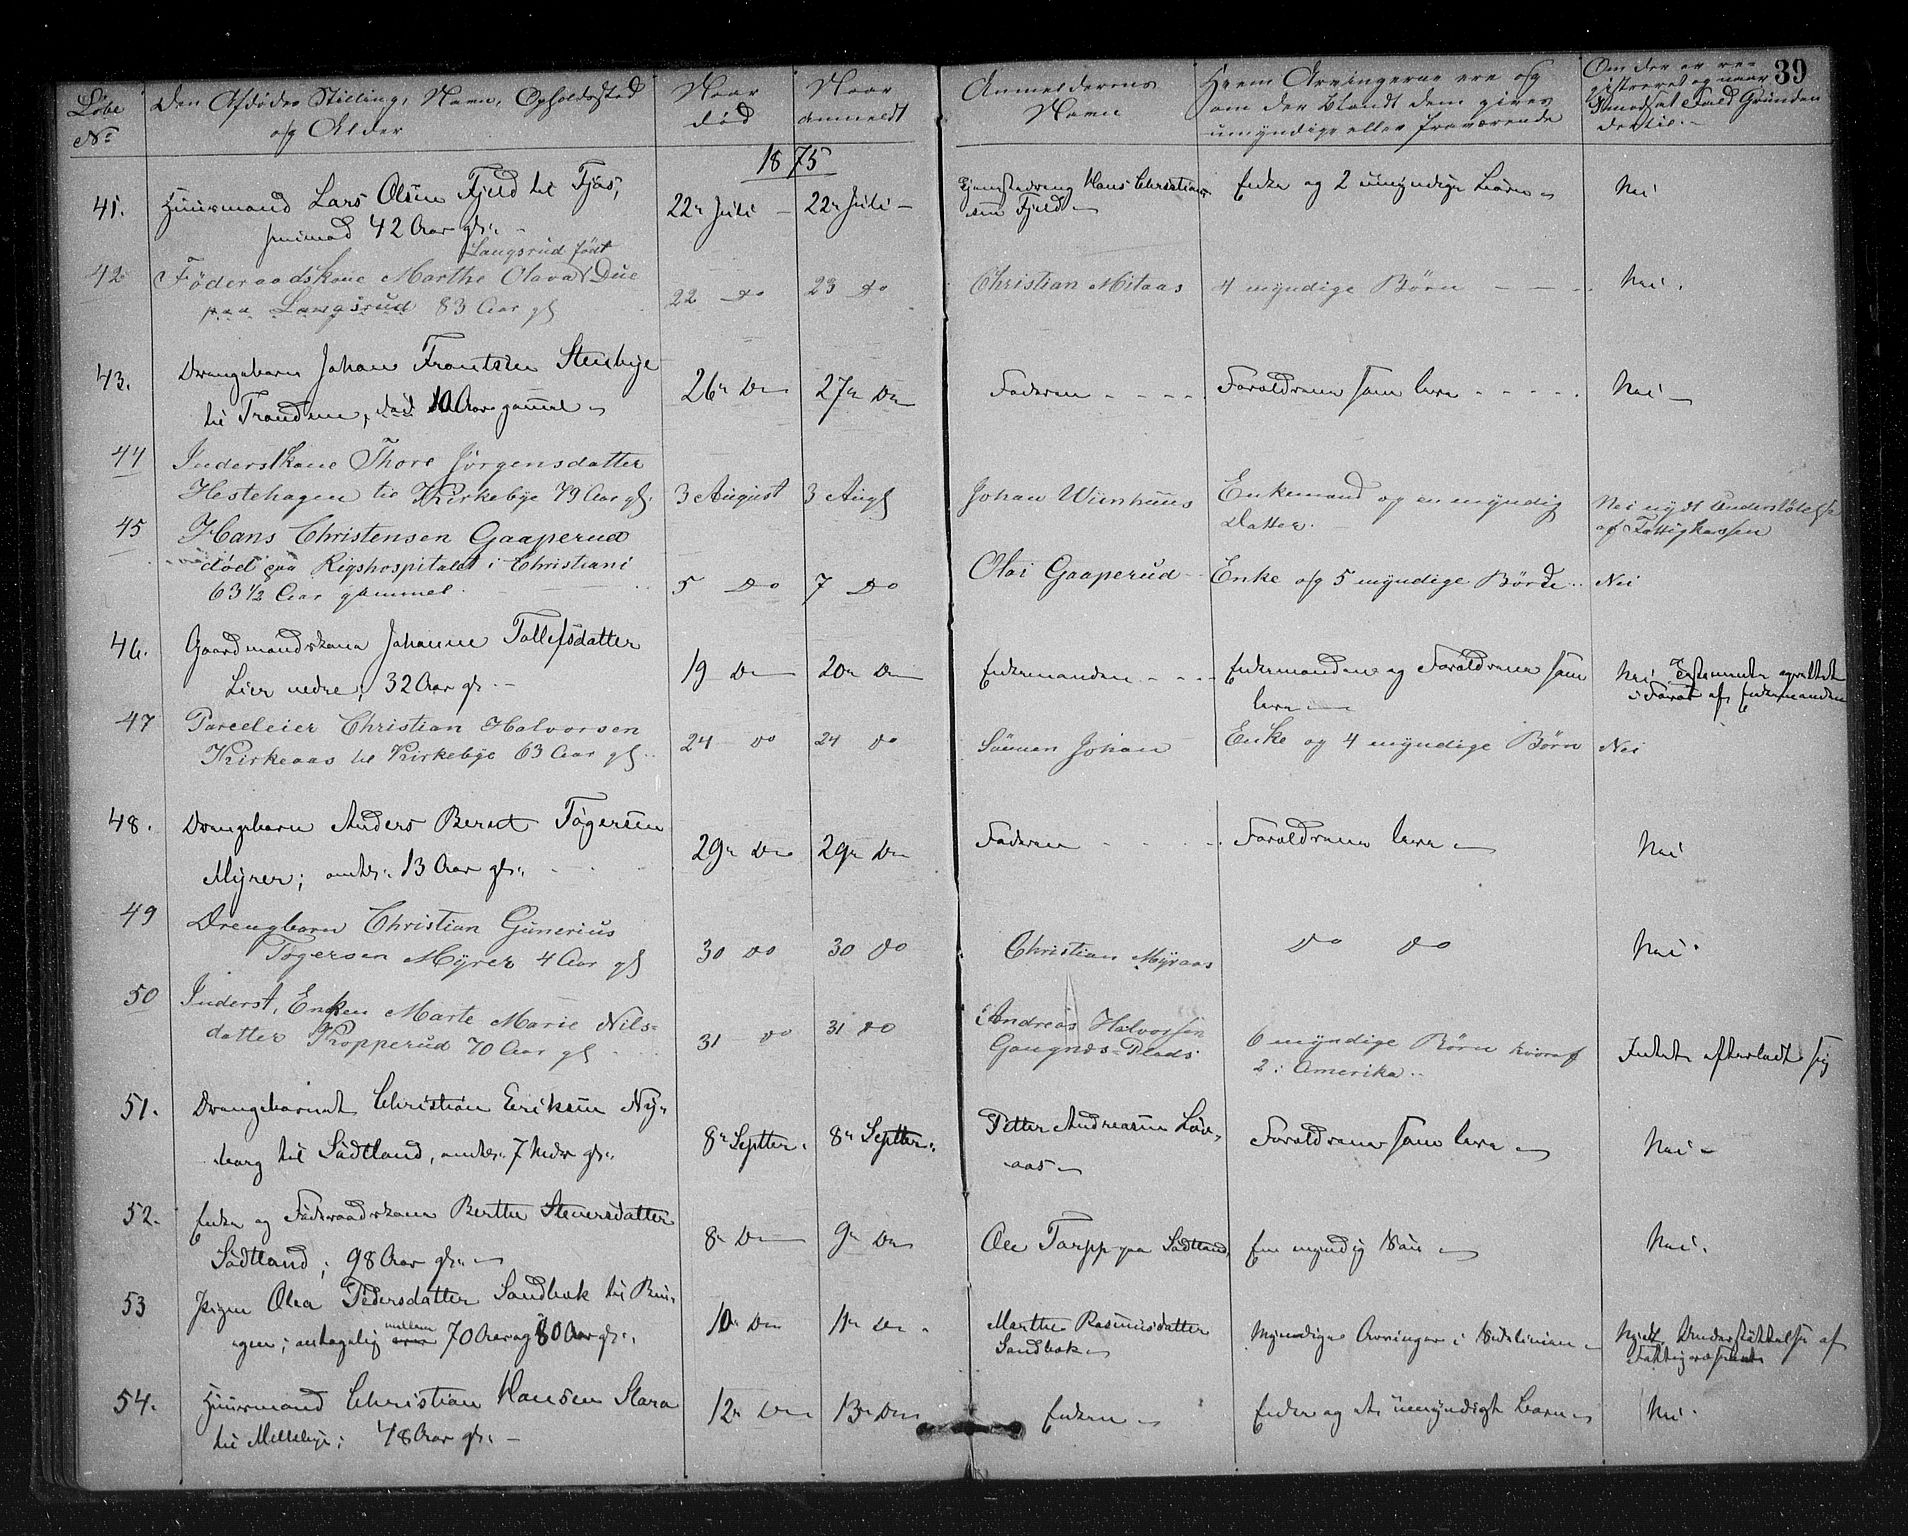 39
Løbe No
Den Afdødes Stilling, Navn, Opholdssted
og Alder
Naar
død
Naar
anmeldt
Anmelderens
Navn
Hvem Arvingerne ere og
om der blandt dem gives
umyndige eller fraværende
Om der er re-
gistreret og naar
modsat Fald Grunden
dertil.
1875
41. Huusmand Lars Olsen Fjeld
42 Aar gl.
22de Juli - 22de Juli -
Hans Christian-
sen Fjeld
Enke og 2 umyndige Børn
Nei
42
Langsrud født
Føderaadskone Marthe Olava Due
paa Langsrud 83 Aar gl
22 Do 23 Do
Christian Mitaas
4 myndige Børn - - -
Nei.
43. Drengebarn Johan Frantsen Stenbye
til Trandem, 10 Aar gammel
26de Do 27de Do
Faderen - - - -
Forældrene som leve - - - - -
Nei
44 Inderstkone Thore Jørgensdatter
Hestehagen til Kirkebye 79 Aar gl.
3 August 3 Augl
Johan Wiinhuus
Enkemand og en myndig
Datter.
Nei nydt Understøtelse
af Fattigkassen
45 Hans Christensen Gaaperud
død paa Rigshospitalet i Christiani
63 1/2 Aar gammel.
5 Do 7 Do
Olai Gaaperud
Enke og 5 myndige Børn
Nei
46. Gaardmandskone Johanne Tollefsdatter
Lier nedre, 32 Aar gl.
19 Do 20de Do
Enkemanden - - -
Enkemanden og Forældrene som
leve
Nei, Testamente oprettet
af Enkemanden
47 Parceleier Christian Halvorsen
Kirkeaas til Kirkebye 63 Aar gl
24 Do 24 Do
Sønnen Johan
Enke og 4 myndige Børn
Nei
48. Drengebarn Anders Bernt Tøgersen
Myrer; omtr. 13 Aar gl.
29de Do 29de Do
Faderen - - - -
Forældrene leve
Nei
49 Drengbarn Christian Gunerius
Tøgersen Myrer 4 Aar gl
30 Do 30 Do
Christian Myraas
Do Do
Nei.
50 Inderst, Enken Marte Marie Nils-
datter Kropperud 70 Aar gl
31 Do 31 Do
Andreas Halvorsen
Gangnæs-Plads
6 myndige Børn hvoraf
2 i Amerika
Intet efterladt sig
51. Drengebarnet Christian Eriksen Ny-
borg til Sødtland, omtr. 7 Mdr gl.
8de Septber. 8de Septber.
Petter Andreasen Løv-
aas
Forældrene som leve
Nei -
52. Enke og Føderaadskone Berthe Stenersdatter
Sødtland; 98 Aar gl.
8de Do 9de Do
Ole Torpp paa Sødtland
En myndig Søn
Nei.
53 Pigen Olea Pedersdatter Sandbæk til
antagelig mellem 70 Aar og 80 Aar gl.
10de Do 11te Do
Marthe Rasmusdatter
Sandbæk
Myndige Arvinger i Sidelinien
Nydt Understøttelse af
Fattigvæsenet
54. Huusmand Christian Hansen Slara
til Mellebye; 48 Aar gl.
12te Do 13de Do
Enken
Enke og et umyndigt Barn
Nei.